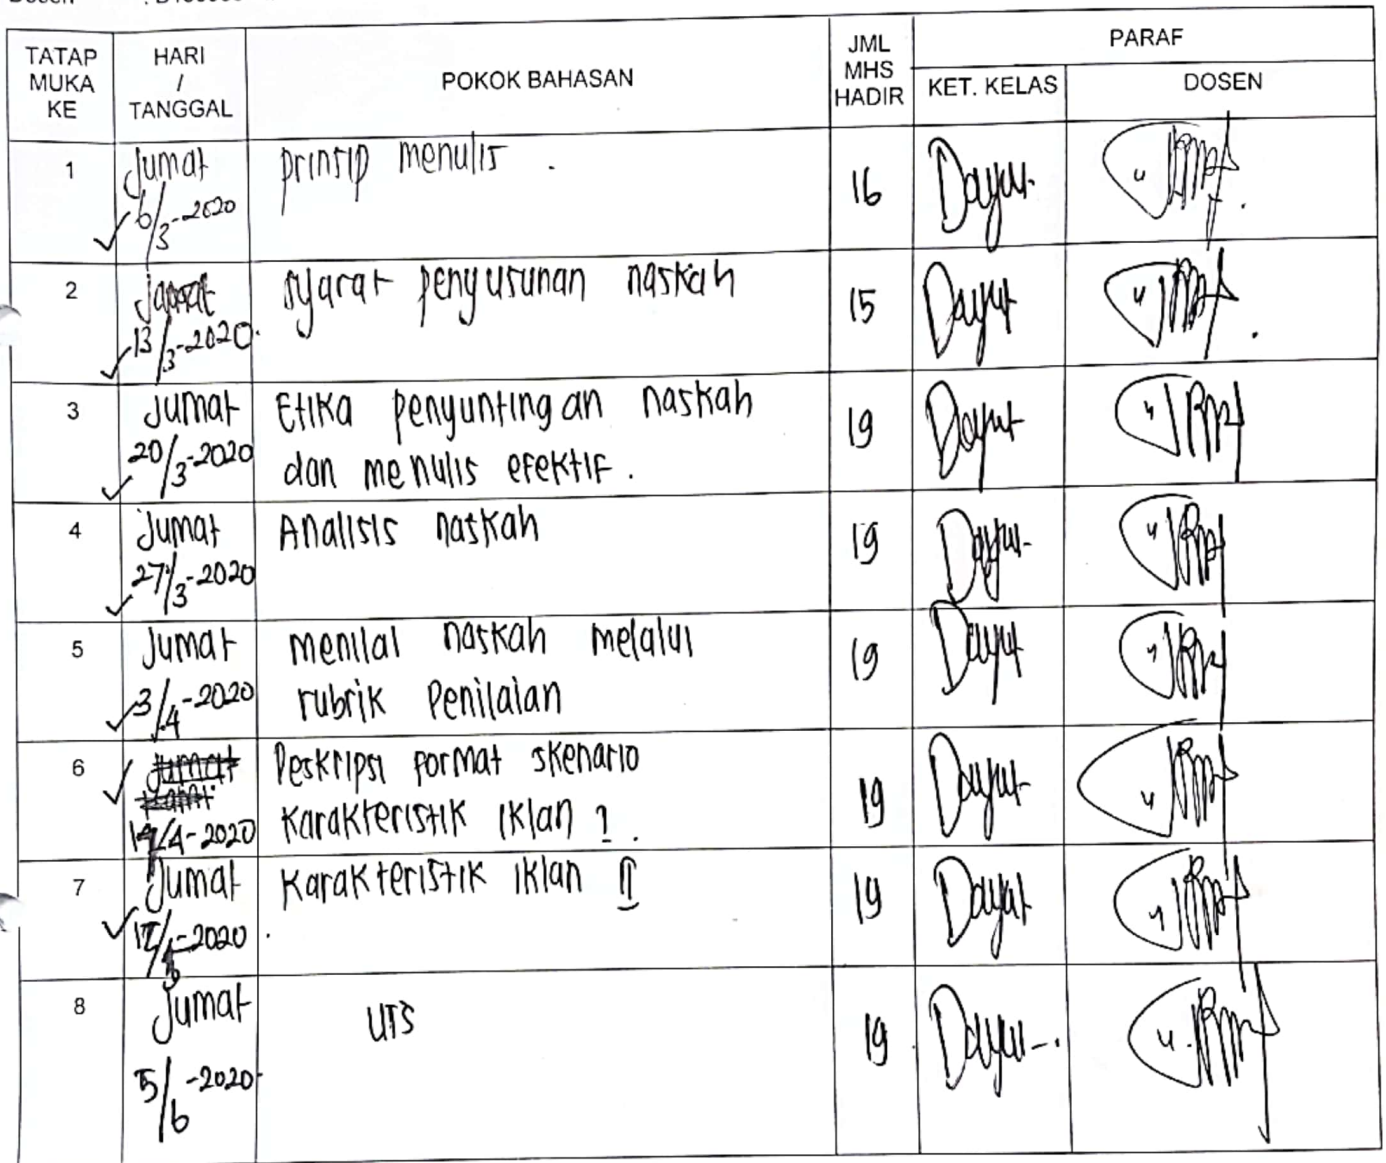 TATAP MUKA KE
HARI / TANGGAL
POKOK BAHASAN
JML MHS HADIR
PARAF
KET. KELAS
DOSEN
1
Jumat
6/3-2020
prinsip menulis .
16
2
13/3-2020
syarat penyusunan naskah
15
3
Jumat
20/3-2020
Etika penyuntingan naskah
dan menulis efektif .
19
4
Jumat
27/3-2020
Analisis naskah
19
5
Jumat
3/4-2020
menilai naskah melalui
rubrik Penilaian
19
6
Deskripsi format skenario
Karakteristik iklan 1 .
19
7
Jumat
Karakteristik iklan II
19
8
Jumat
5/6-2020
UTS
19